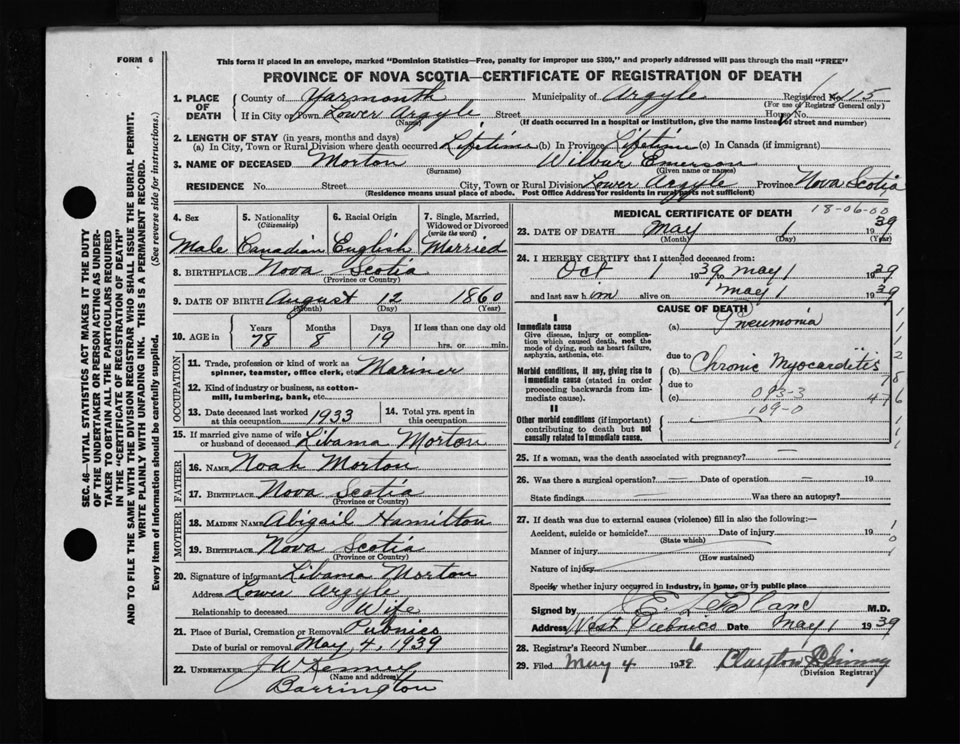 FORM 6
This form if placed in an envelope, marked "Dominion Statistics—Free, penalty for improper use $300," and properly addressed will pass through the mail "FREE"
PROVINCE OF NOVA SCOTIA—CERTIFICATE OF REGISTRATION OF DEATH
SEC. 46—VITAL STATISTICS ACT MAKES IT THE DUTY
OF THE UNDERTAKER OR PERSON ACTING AS UNDER-
TAKER TO OBTAIN ALL THE PARTICULARS REQUIRED
IN THE "CERTIFICATE OF REGISTRATION OF DEATH"
AND TO FILE THE SAME WITH THE DIVISION REGISTRAR WHO SHALL ISSUE THE BURIAL PERMIT.
WRITE PLAINLY WITH UNFADING INK. THIS IS A PERMANENT RECORD.
Every item of information should be carefully supplied. (See reverse side for instructions.)
1. PLACE OF DEATH
County of Yarmouth Municipality of Argyle Registered No. 115
(For use of Registrar General only)
If in City or Town Lower Argyle Street House No.
(Name) (If death occurred in a hospital or institution, give the name instead of street and number)
2. LENGTH OF STAY (in years, months and days)
(a) In City, Town or Rural Division where death occurred Lifetime (b) In Province Lifetime (c) In Canada (if immigrant)
3. NAME OF DECEASED Morton Wilbur Emerson
(Surname) (Given name or names)
RESIDENCE No. Street City, Town or Rural Division Lower Argyle Province Nova Scotia
(Residence means usual place of abode. Post Office Address for residents in rural parts not sufficient)
4. Sex Male
5. Nationality (Citizenship) Canadian
6. Racial Origin English
7. Single, Married, Widowed or Divorced (write the word) Married
8. BIRTHPLACE Nova Scotia
(Province or Country)
9. DATE OF BIRTH August 12 1860
(Month) (Day) (Year)
10. AGE in Years 78 Months 8 Days 19 If less than one day old hrs. or min.
OCCUPATION
11. Trade, profession or kind of work as spinner, teamster, office clerk, etc. Mariner
12. Kind of industry or business, as cotton-mill, lumbering, bank, etc.
13. Date deceased last worked at this occupation 1933
14. Total yrs. spent in this occupation
15. If married give name of wife or husband of deceased Libama Morton
FATHER
16. NAME Noah Morton
17. BIRTHPLACE Nova Scotia
(Province or Country)
MOTHER
18. MAIDEN NAME Abigail Hamilton
19. BIRTHPLACE Nova Scotia
(Province or Country)
20. Signature of informant Libama Morton
Address Lower Argyle
Relationship to deceased Wife
21. Place of Burial, Cremation or Removal Pubnico
Date of burial or removal May, 4, 1939
22. UNDERTAKER J W Kenney
(Name and address)
Barrington
MEDICAL CERTIFICATE OF DEATH 18-06-00
23. DATE OF DEATH May 1 1939
(Month) (Day) (Year)
24. I HEREBY CERTIFY that I attended deceased from:
Oct 1 1939 to May 1 1939
and last saw him alive on May 1 1939
CAUSE OF DEATH
I
Immediate cause
Give disease, injury or complication which caused death, not the mode of dying, such as heart failure, asphyxia, asthenia, etc.
(a) Pneumonia
due to
Morbid conditions, if any, giving rise to immediate cause (stated in order proceeding backwards from immediate cause).
(b) Chronic Myocarditis
due to 093-3
(c) 109-0
II
Other morbid conditions (if important) contributing to death but not causally related to immediate cause.
25. If a woman, was the death associated with pregnancy? —
26. Was there a surgical operation? — Date of operation — 19
State findings — Was there an autopsy?
27. If death was due to external causes (violence) fill in also the following:—
Accident, suicide or homicide? Date of injury 19
(State which)
Manner of injury
(How sustained)
Nature of injury
Specify whether injury occurred in industry, in home, or in public place
Signed by M.D.
Address West Pubnico Date May 1 1939
28. Registrar's Record Number 6
29. Filed May 4 1939 Clayton
(Division Registrar)